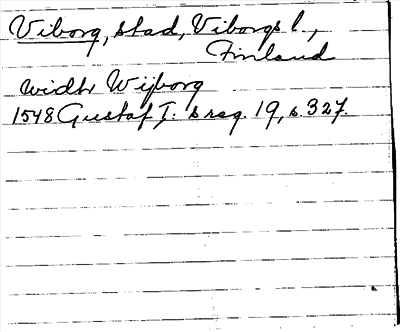 Viborg, stad, Viborgs l.,
Finland
widh Wijborg
1548 Gustaf I:s reg. 19, s. 327.